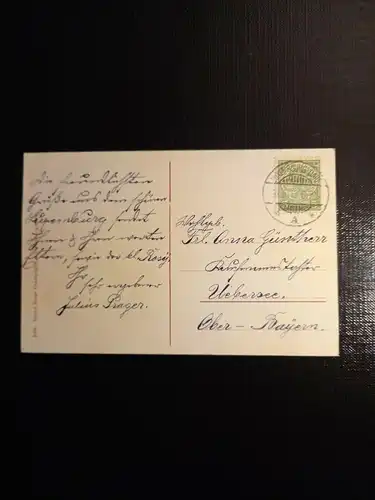 Die freundlichsten
Grüße aus dem schönen
Luxemburg sendet
Ihnen & Ihren werten
Eltern, sowie der kl. Rosy
Ihr
sehr ergebener
Julius Prager.
Wohlgb.
Frl. Anna Güntherr
Kaufmannstochter
Uebersee.
Ober-Bayern.